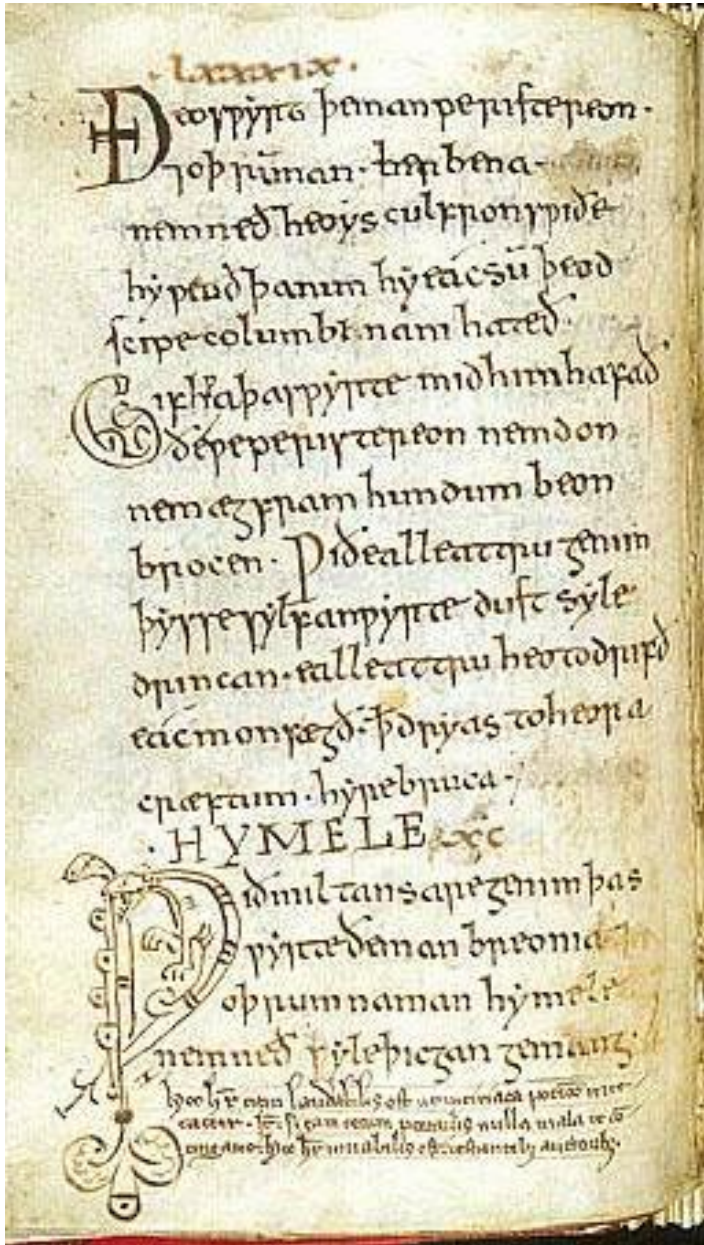 · lxxxix ·
Ðeos ƿyrt þe man peristereon ·
⁊ oþrũman · berbena ·
nemneð heo ys culfron sƿiðe
hyƿcuð þanun hy eac sũ þeod
scipe columbinam hateð ·
Gif hƿa þas ƿyrte mid him hafað
ðe ƿe peristereon nemdon
ne mæg fram hundum beon
brocen · Ƿið ealle attru genim
þysse sylfan ƿyrte dust syle
drincan · ealle attru heo todrifð
eac mon sægð · ꝥ dryas to heora
cræftum · hyre bruca ·
· HYMELE xc
Ƿið miltan sare genim þas
ƿyrte ðe man breonia
oþrum naman hymele
nemneð syle þicgan gemang
laudabilis est
nulla mala